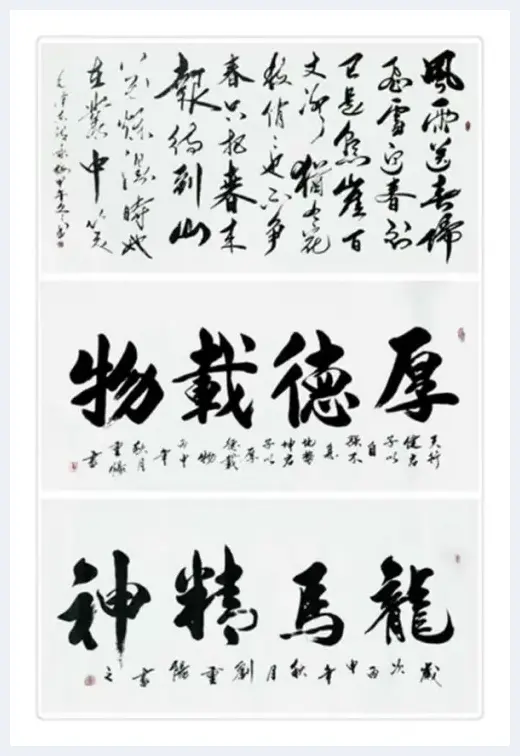 風雨送春歸
飛雪迎春到
已是懸崖百
丈冰猶有花
枝俏〻也不争
春只把春来
報待到山
花爛漫時她
在叢中笑
厚德載物
天行
健君
子以
自
強不
息
地勢
坤君
子以
厚
德載
物
丙申
年
秋月
書
龍馬精神
歲次丙申年秋月劉重陽書之